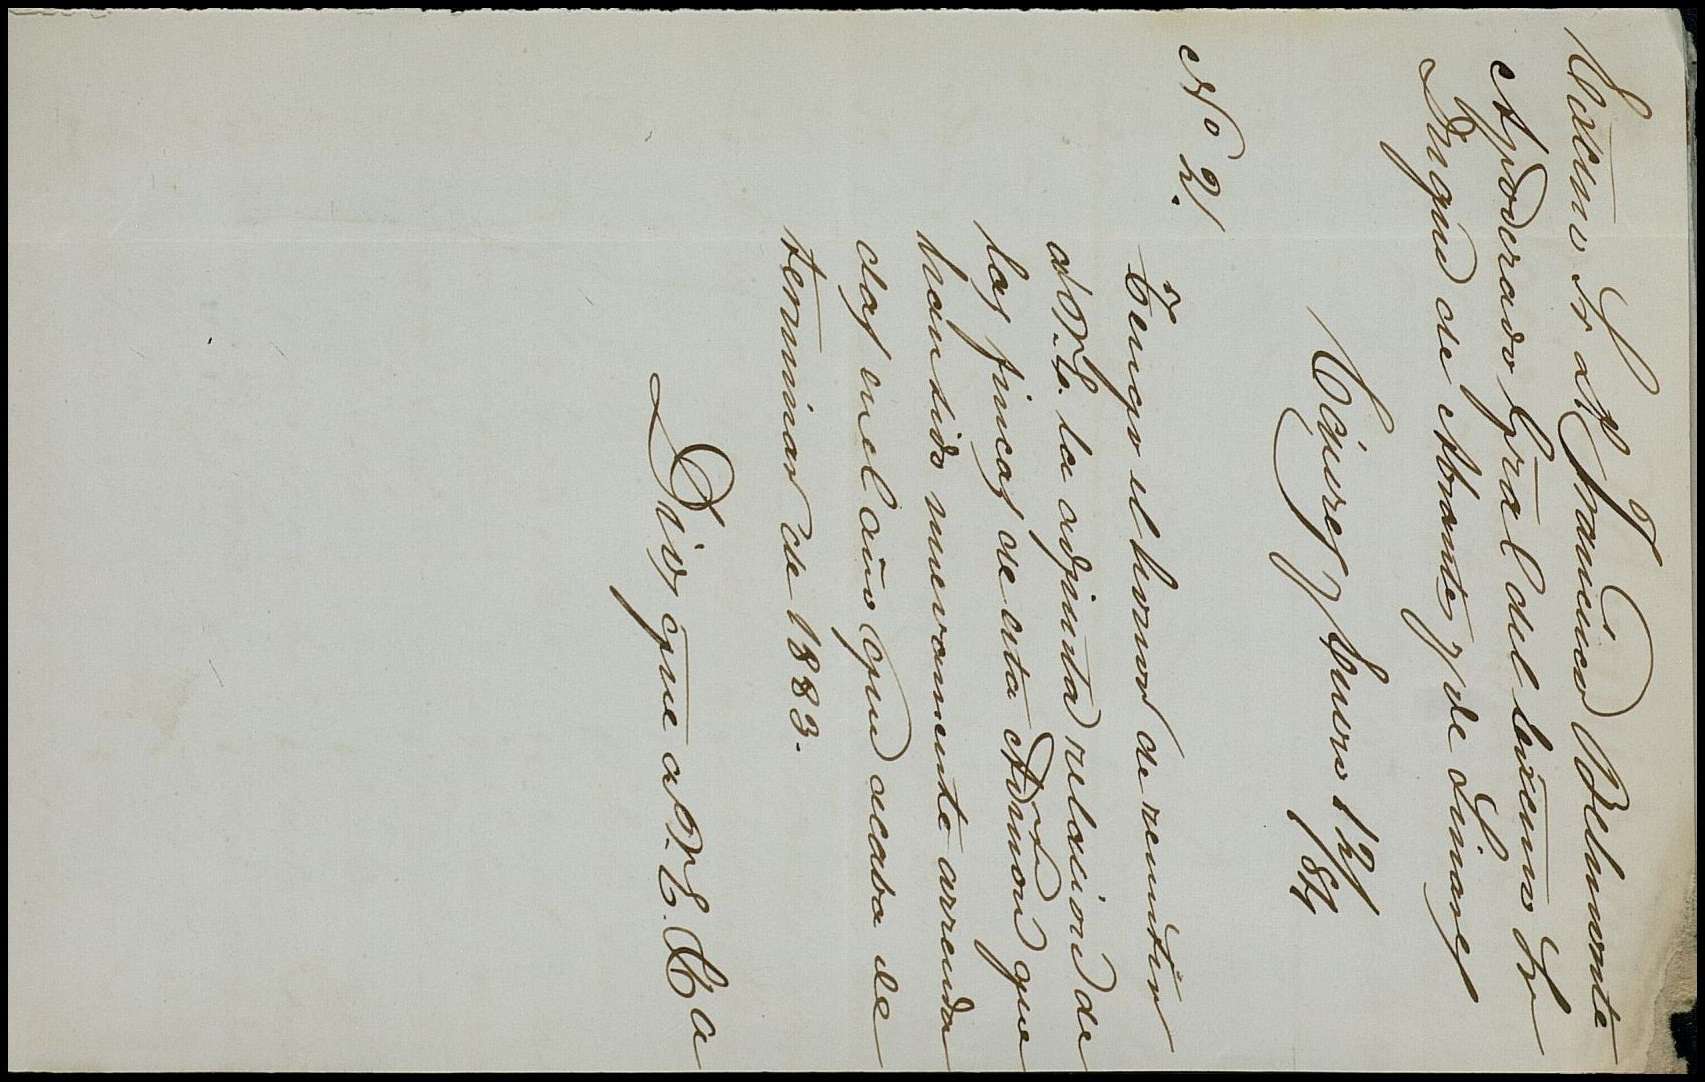 Excmo Sr. Dn Francisco Belmonte
Apoderado Gral del Excmo Sr
Duque de Abrantes y de Linares
y Enero 12/84
No 2/.
Tengo el honor de remitir
a V.E. la adjunta relacion de
las fincas de esta Admon que
han sido nuevamente arrenda
das en el año que acaba de
terminar de 1883.
Dios gue a V.E. Ma